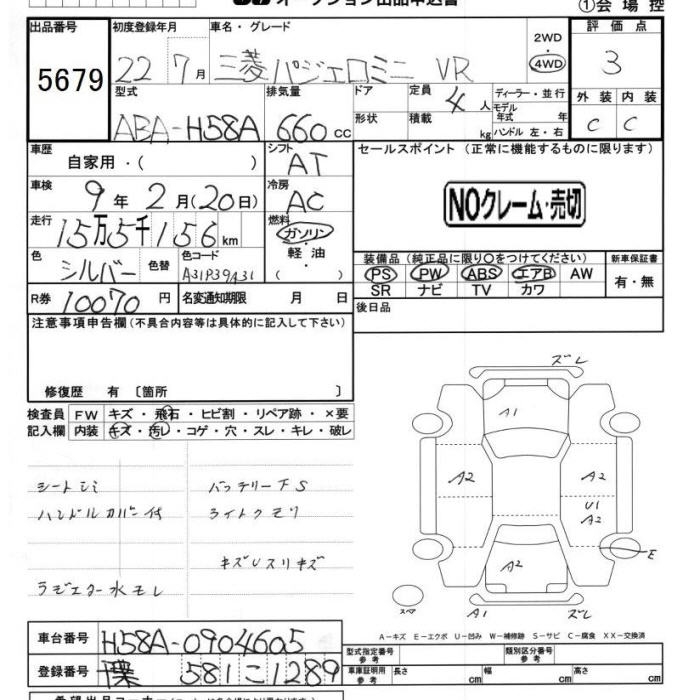 オークション出品申込書
①会場控
出品番号 初度登録年月 車名・グレード 2WD・4WD 評価点
5679 22 7月 三菱 パジェロミニ VR 3
型式 排気量 ドア 定員 4人 ディーラー・並行 外装 内装
ABA-H58A 660cc 形状 積載 kg モデル年式 年 C C
ハンドル 左・右
車歴 自家用・( ) シフト AT セールスポイント (正常に機能するものに限ります)
車検 9年2月(20日) 冷房 AC NOクレーム・売切
走行 15万5千156km 燃料 ガソリン
軽油
( )
色 シルバー 色替 色コード A31P39A31
装備品(純正品に限り○をつけてください) 新車保証書
PS PW ABS エアB AW 有・無
SR ナビ TV カワ
R券 10070円 名変通知期限 月 日 後日品
注意事項申告欄(不具合内容等は具体的に記入して下さい)
修復歴 有 〔箇所 〕
検査員 FW キズ・飛石・ヒビ割・リペア跡・×要
記入欄 内装 キズ・汚レ・コゲ・穴・スレ・キレ・破レ
シートシミ バッテリーFS
ハンドルカバー付 ライトクモリ
キズUスリキズ
ラジエター水モレ
ズレ
A1
A2 A2
U1
A2
A2 E
スペア A1 ズレ
A－キズ E－エクボ U－凹み W－補修跡 S－サビ C－腐食 XX－交換済
車台番号 H58A-0904605
型式指定番号 参考 類別区分番号 参考
登録番号 千葉 581 こ 1289
車庫証明用 参考 長さ cm 幅 cm 高さ cm